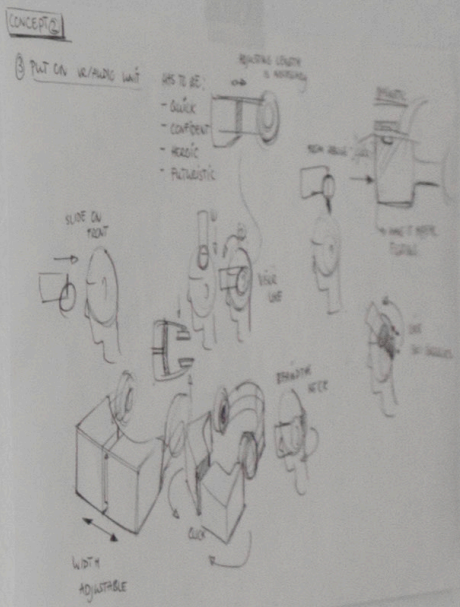 CONCEPT ②
③ PUT ON VR/AUDIO UNIT
HAS TO BE:
- QUICK
- CONFIDENT
- HEROIC
- FUTURISTIC
ADJUSTING LENGTH
IS NECESSARY
SLIDE ON
FRONT
VISOR
LIKE
BEHIND THE
NECK
LIKE
SKI GOGGLES
CLICK
WIDTH
ADJUSTABLE